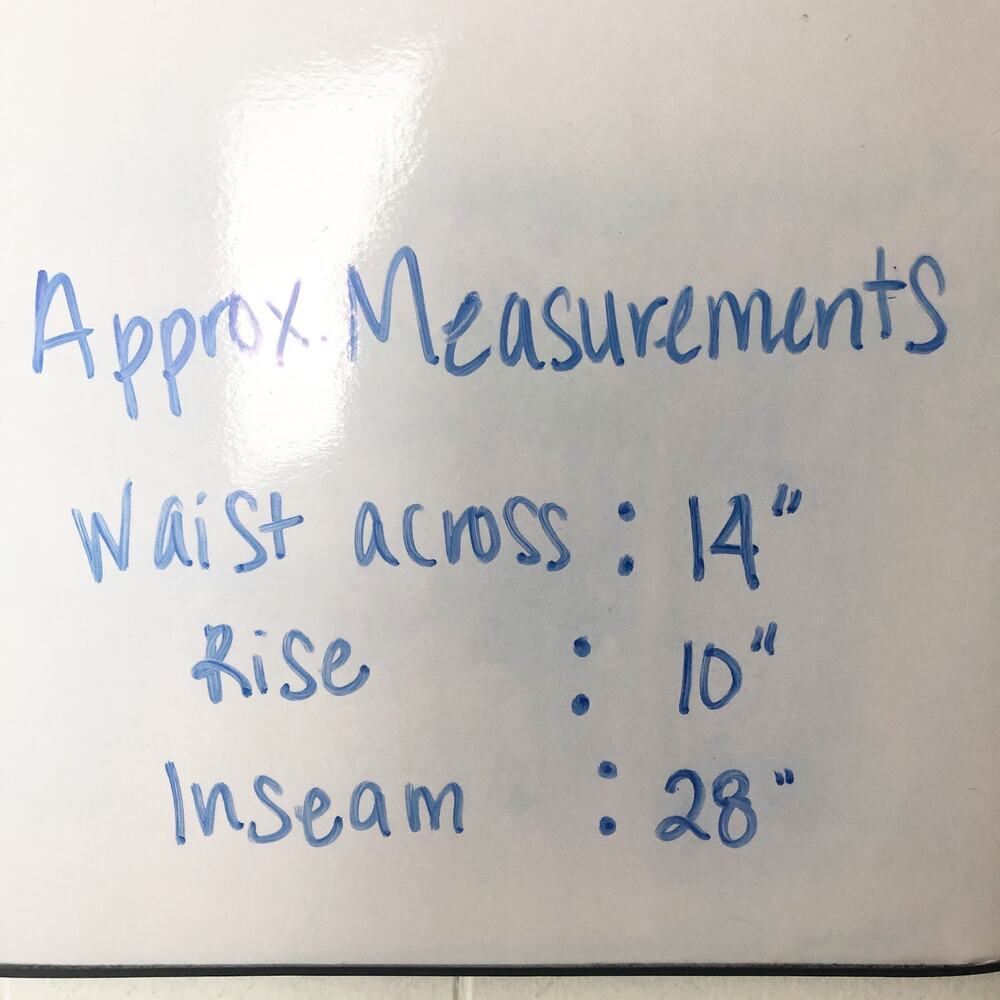 Approx. Measurements
Waist across : 14"
Rise : 10"
Inseam : 28"